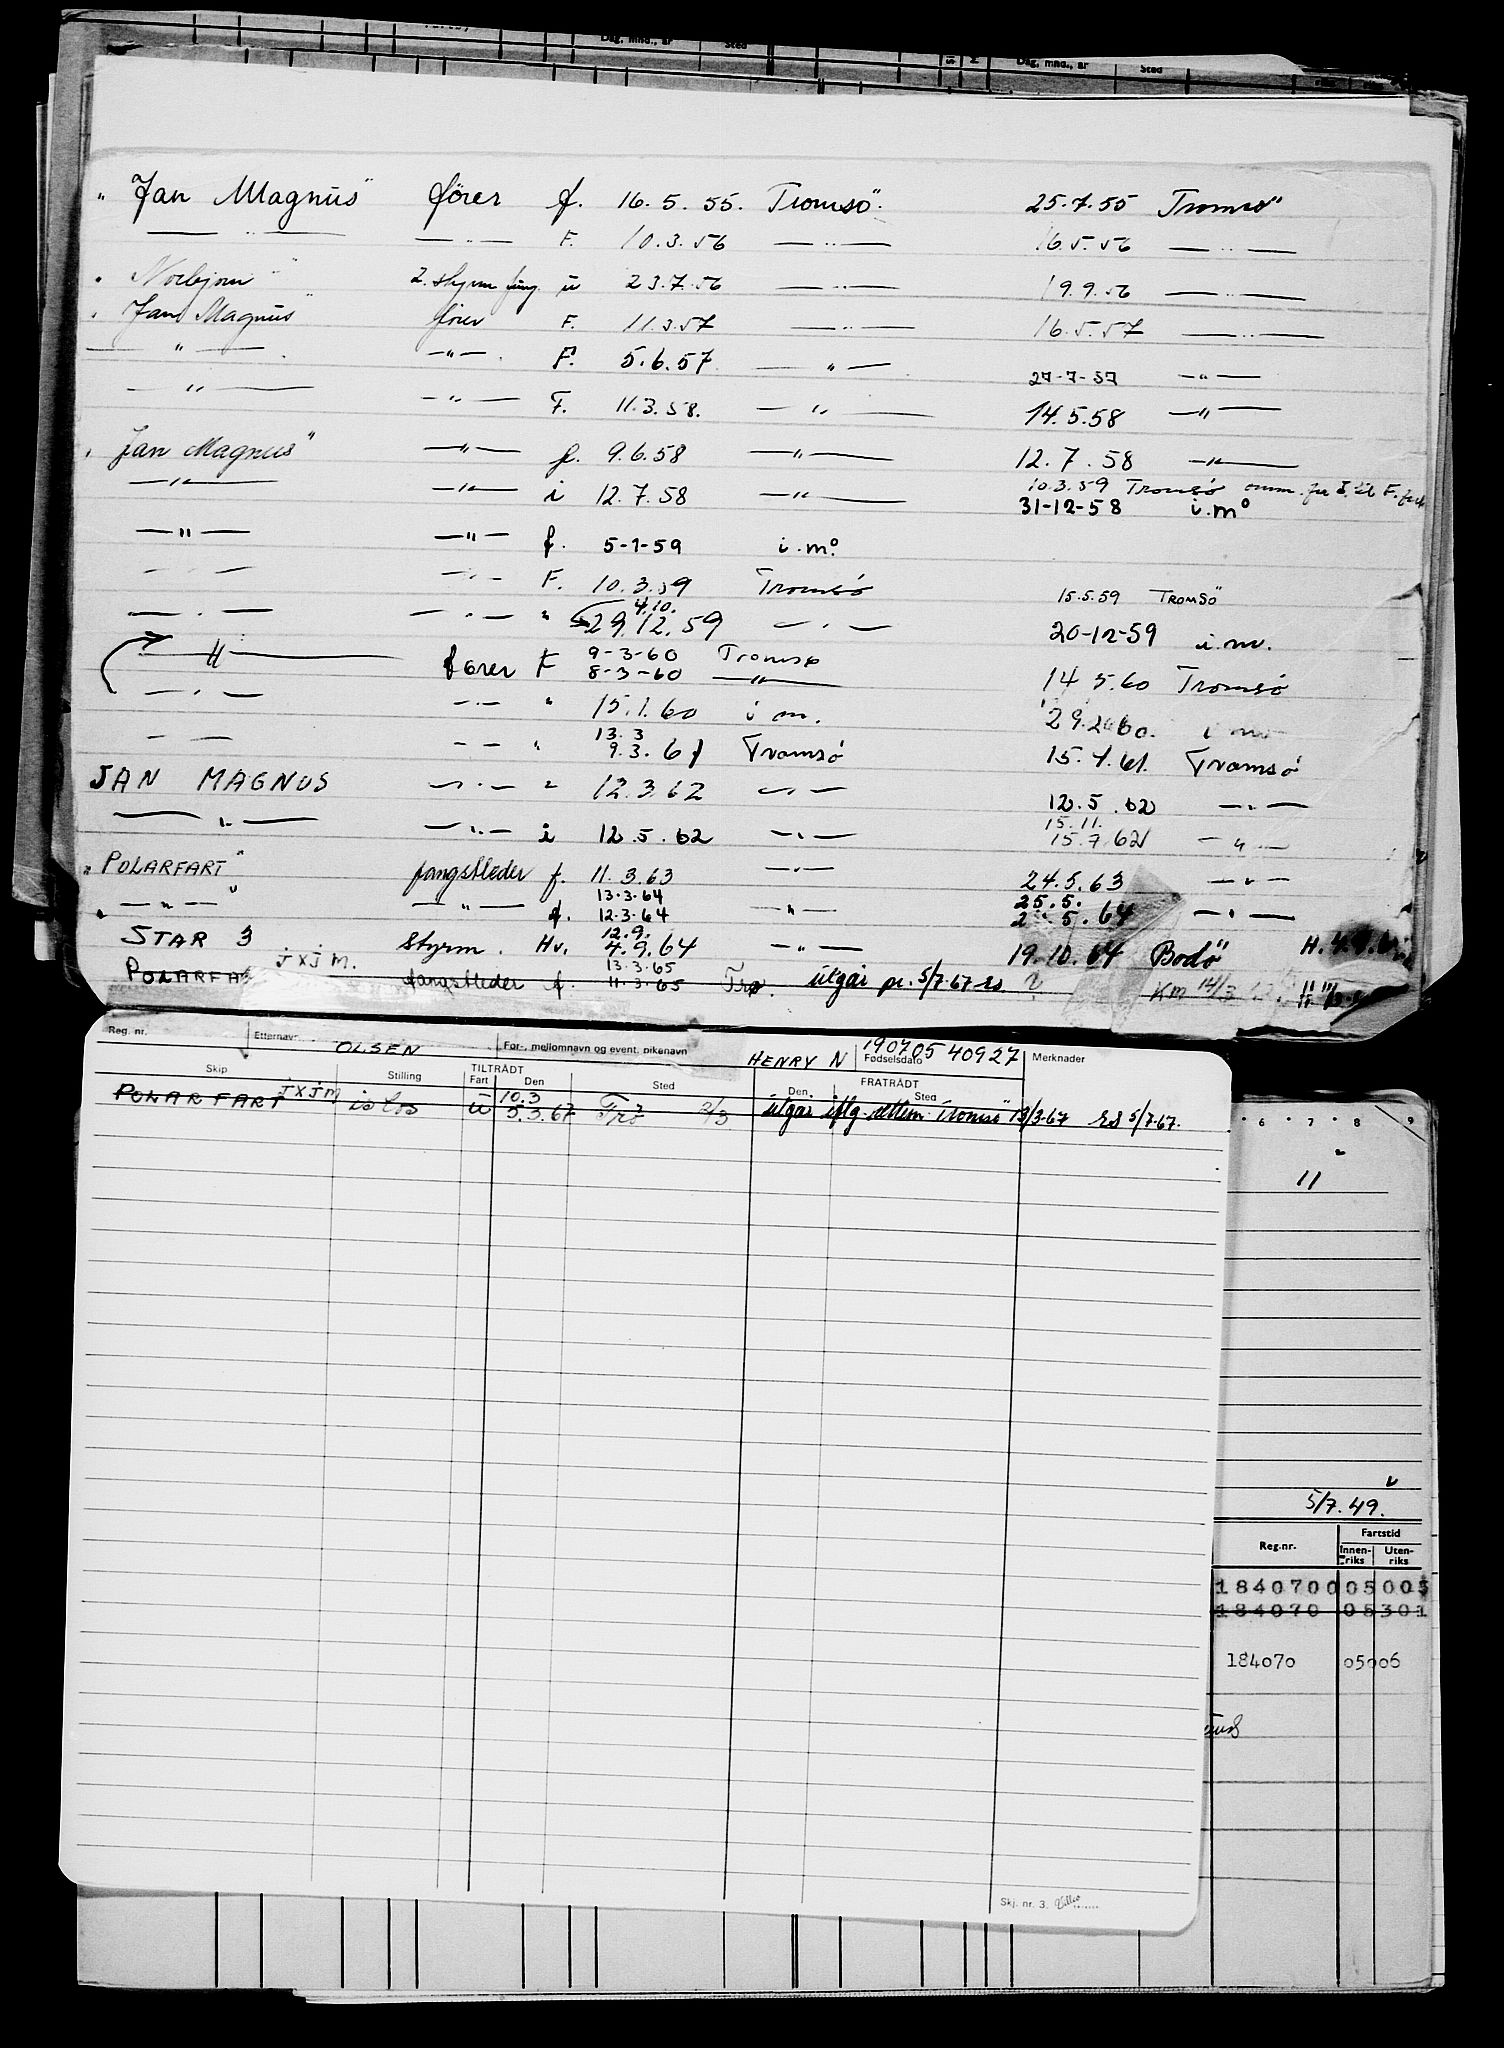 Dag, mnd., år Sted Dag, mnd., år Sted
"Jan Magnus" förer f. 16.5.55. Tromsö. 25.7.55 Tromsö
— " — — " — F. 10.3.56 — " — 16.5.56 — " —
" Norbjørn " 2. styrm fung. u 23.7.56 — " — 19.9.56 — " —
" Jan Magnus " förer F. 11.3.57 — " — 16.5.57 — " —
— " — — " — F. 5.6.57 — " — 27-7-57 — " —
— " — — " — F. 11.3.58. — " — 14.5.58 — " —
" Jan Magnus " — " — f. 9.6.58 — " — 12.7.58 — " —
— " — — " — i 12.7.58 — " — 10.3.59 Tromsö omm. fra I. til F. fart
31-12-58 i.mo
— " — — " — f. 5-1-59 i.mo.
— " — — " — F. 10.3.59 Tromsö 15.5.59 TROMSÖ
— " — — " — " 4.10. 29.12.59 — " — 20-12-59 i.m.
— " — förer F 9-3-60 Tromsø
8-3-60 — " — 14 5.60 Tromsö
— " — — " — " 15.1.60 i m. 29.2.60. i m
— " — — " — " 13.3
9.3.61 Tromsö 15.4.61. Tromsö
JAN MAGNUS — " — " 12.3.62 — " — 12.5.62 — " —
— " — — " — i 12.5.62 — " — 15.11.
15.7.62 — " —
"POLARFART" fangstleder f. 11.3.63 — " — 24.5.63 — " —
— " — — " — f. 13.3.64
12.3.64 — " — 25.5.
2 .5.64 — " —
" STAR 3 styrm. Hv. 12.9.
4.9.64 — " — 19.10.64 Bodö" H.
POLARFA JXJM. fangstleder f. 13.3.65
11.3.65 Trø. utgår pr. 5/7-67 rs ? Km 14/3
Reg. nr. Etternavn OLSEN For-, mellomnavn og event. pikenavn HENRY N Fødselsdato 190705 40927 Merknader
Skip Stilling TILTRÅDT FRATRÅDT
Fart Den Sted Den Sted
POLARFART JXJM islos u 10.3
5.3.67 Trø 2/3 utgår iflg. Tromsö 13/3-67 rs 5/7-67.
6 7 8 9
11
5/7.49.
Reg.nr. Fartstid
Innenriks Utenriks
1840700 05005
184070 05301
184070 05006
Skj. nr. 3.